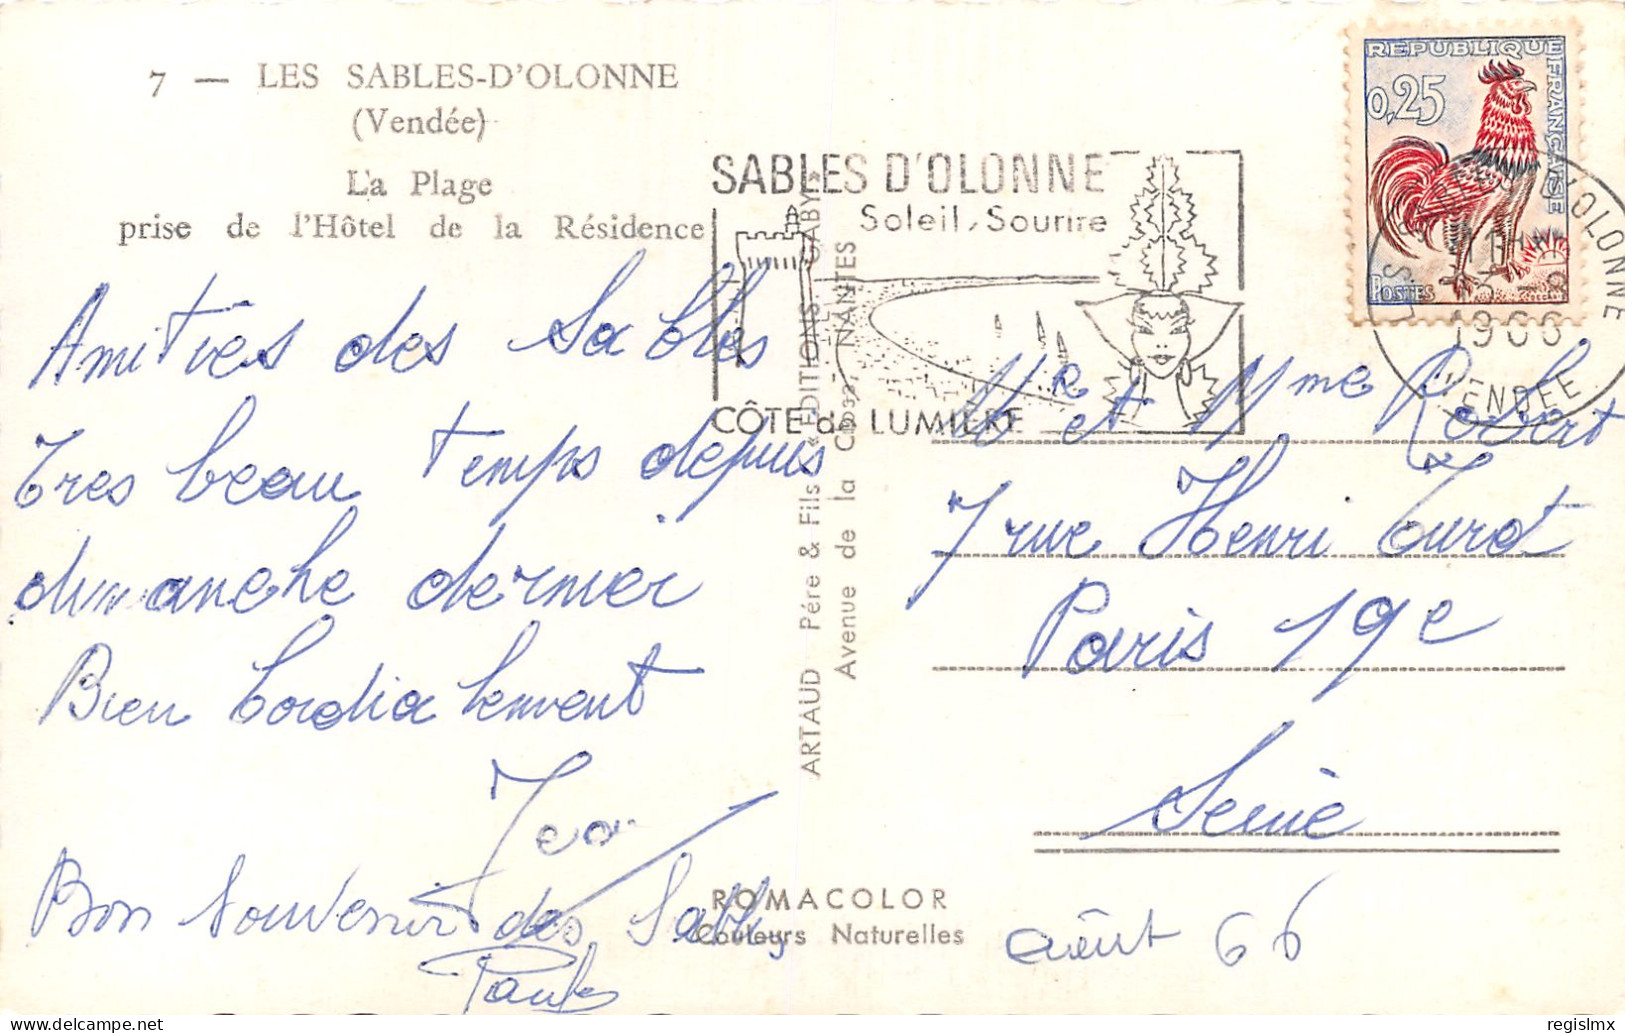 7 — LES SABLES-D'OLONNE
(Vendée)
La Plage
prise de l'Hôtel de la Résidence
Amitiés des Sables
Tres beau temps depuis
dimanche dernier
Bien Cordialement
Jean
Bon Souvenir des Sables
SABLES D'OLONNE
Soleil, Sourire
CÔTE de LUMIÈRE
ARTAUD Père & Fils « EDITIONS GABY »
Avenue de la Close, NANTES
ROMACOLOR
Couleurs Naturelles
REPUBLIQUE FRANÇAISE
0,25
POSTES
D'OLONNE
1966
VENDEE
Mr et Mme Robert
7 rue Henri Turot
Paris 19e
Seine
août 66
regislmx